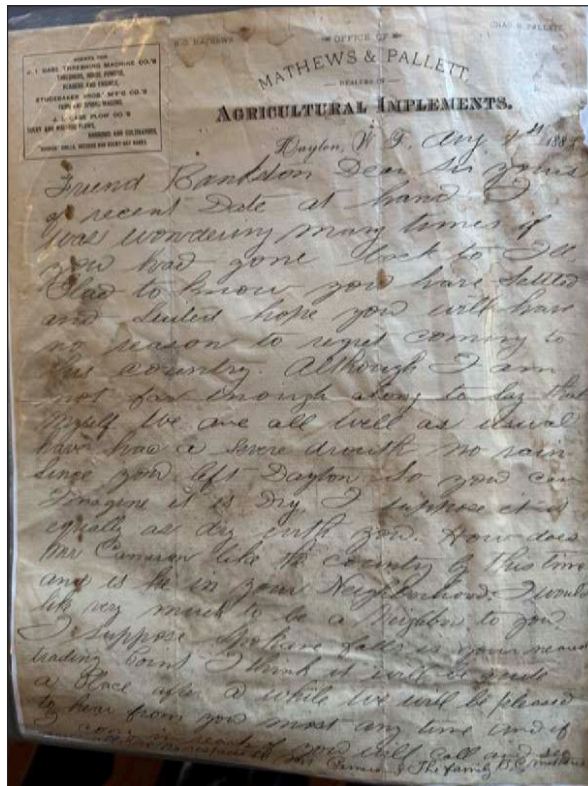 AGENTS FOR
J. I. CASE THRESHING MACHINE CO.'S
THRESHERS, HORSE POWERS,
HEADERS AND ENGINES,
STUDEBAKER BROS' M'F'G CO.'S
FARM AND SPRING WAGONS,
J. I. CASE PLOW CO.'S
SULKY AND WALKING PLOWS,
HARROWS AND CULTIVATORS,
CHAS. R. PALLETT
OFFICE OF
MATHEWS & PALLETT,
DEALERS IN
AGRICULTURAL IMPLEMENTS.
Dayton, W. T. Aug 188
Friend Bankston Dear Sir yours
of recent Date at hand I
was wondering many times if
you had gone back to Ill
Glad to know you have settled
and suited hope you will have
no reason to regret coming to
this country. Although I am
not far enough along to say that
myself We are all well as usual
have had a severe drouth no rain
since you left Dayton So you can
Imagine it is Dry I suppose it is
equally as dry with you. How does
Mr Cameron like the country by this time
and is he in your Neighborhood. I would
like very much to be a Neighbor to you
I suppose Spokane falls is your nearest
trading Point I think it will be quite
a Place after a while We will be pleased
to hear from you most any time and if
you will call and see
The family